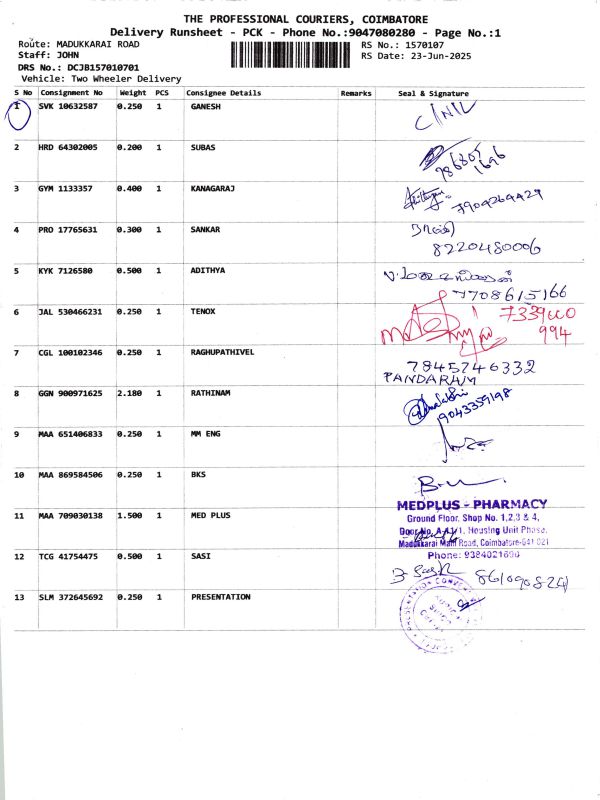 THE PROFESSIONAL COURIERS, COIMBATORE
Delivery Runsheet - PCK - Phone No.:9047080280 - Page No.:1
Route: MADUKKARAI ROAD RS No.: 1570107
Staff: JOHN RS Date: 23-Jun-2025
DRS No.: DCJB157010701
Vehicle: Two Wheeler Delivery
S No Consignment No Weight PCS Consignee Details Remarks Seal & Signature
1 SVK 10632587 0.250 1 GANESH
2 HRD 64302005 0.200 1 SUBAS
3 GYM 1133357 0.400 1 KANAGARAJ
7904264429
4 PRO 17765631 0.300 1 SANKAR
8220480006
5 KYK 7126580 0.500 1 ADITHYA
7708615166
6 JAL 530466231 0.250 1 TENOX
994
7 CGL 100102346 0.250 1 RAGHUPATHIVEL
7845746332
PANDARAM
8 GGN 900971625 2.180 1 RATHINAM
9043359198
9 MAA 651406833 0.250 1 MM ENG
10 MAA 869584506 0.250 1 BKS
11 MAA 709030138 1.500 1 MED PLUS
MEDPLUS - PHARMACY
Ground Floor, Shop No. 1,2,3 & 4,
Door No. A-A1/1, Housing Unit Phase,
Madukkarai Main Road, Coimbatore-641 021
Phone: 9384021690
12 TCG 41754475 0.500 1 SASI
13 SLM 372645692 0.250 1 PRESENTATION
PRESENTATION CONVENT